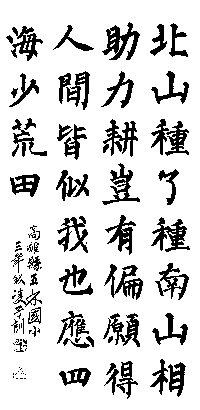 北山種了種南山相
助力耕豈有偏願得
人間皆似我也應四
海少荒田
高雄縣五林國小
三年